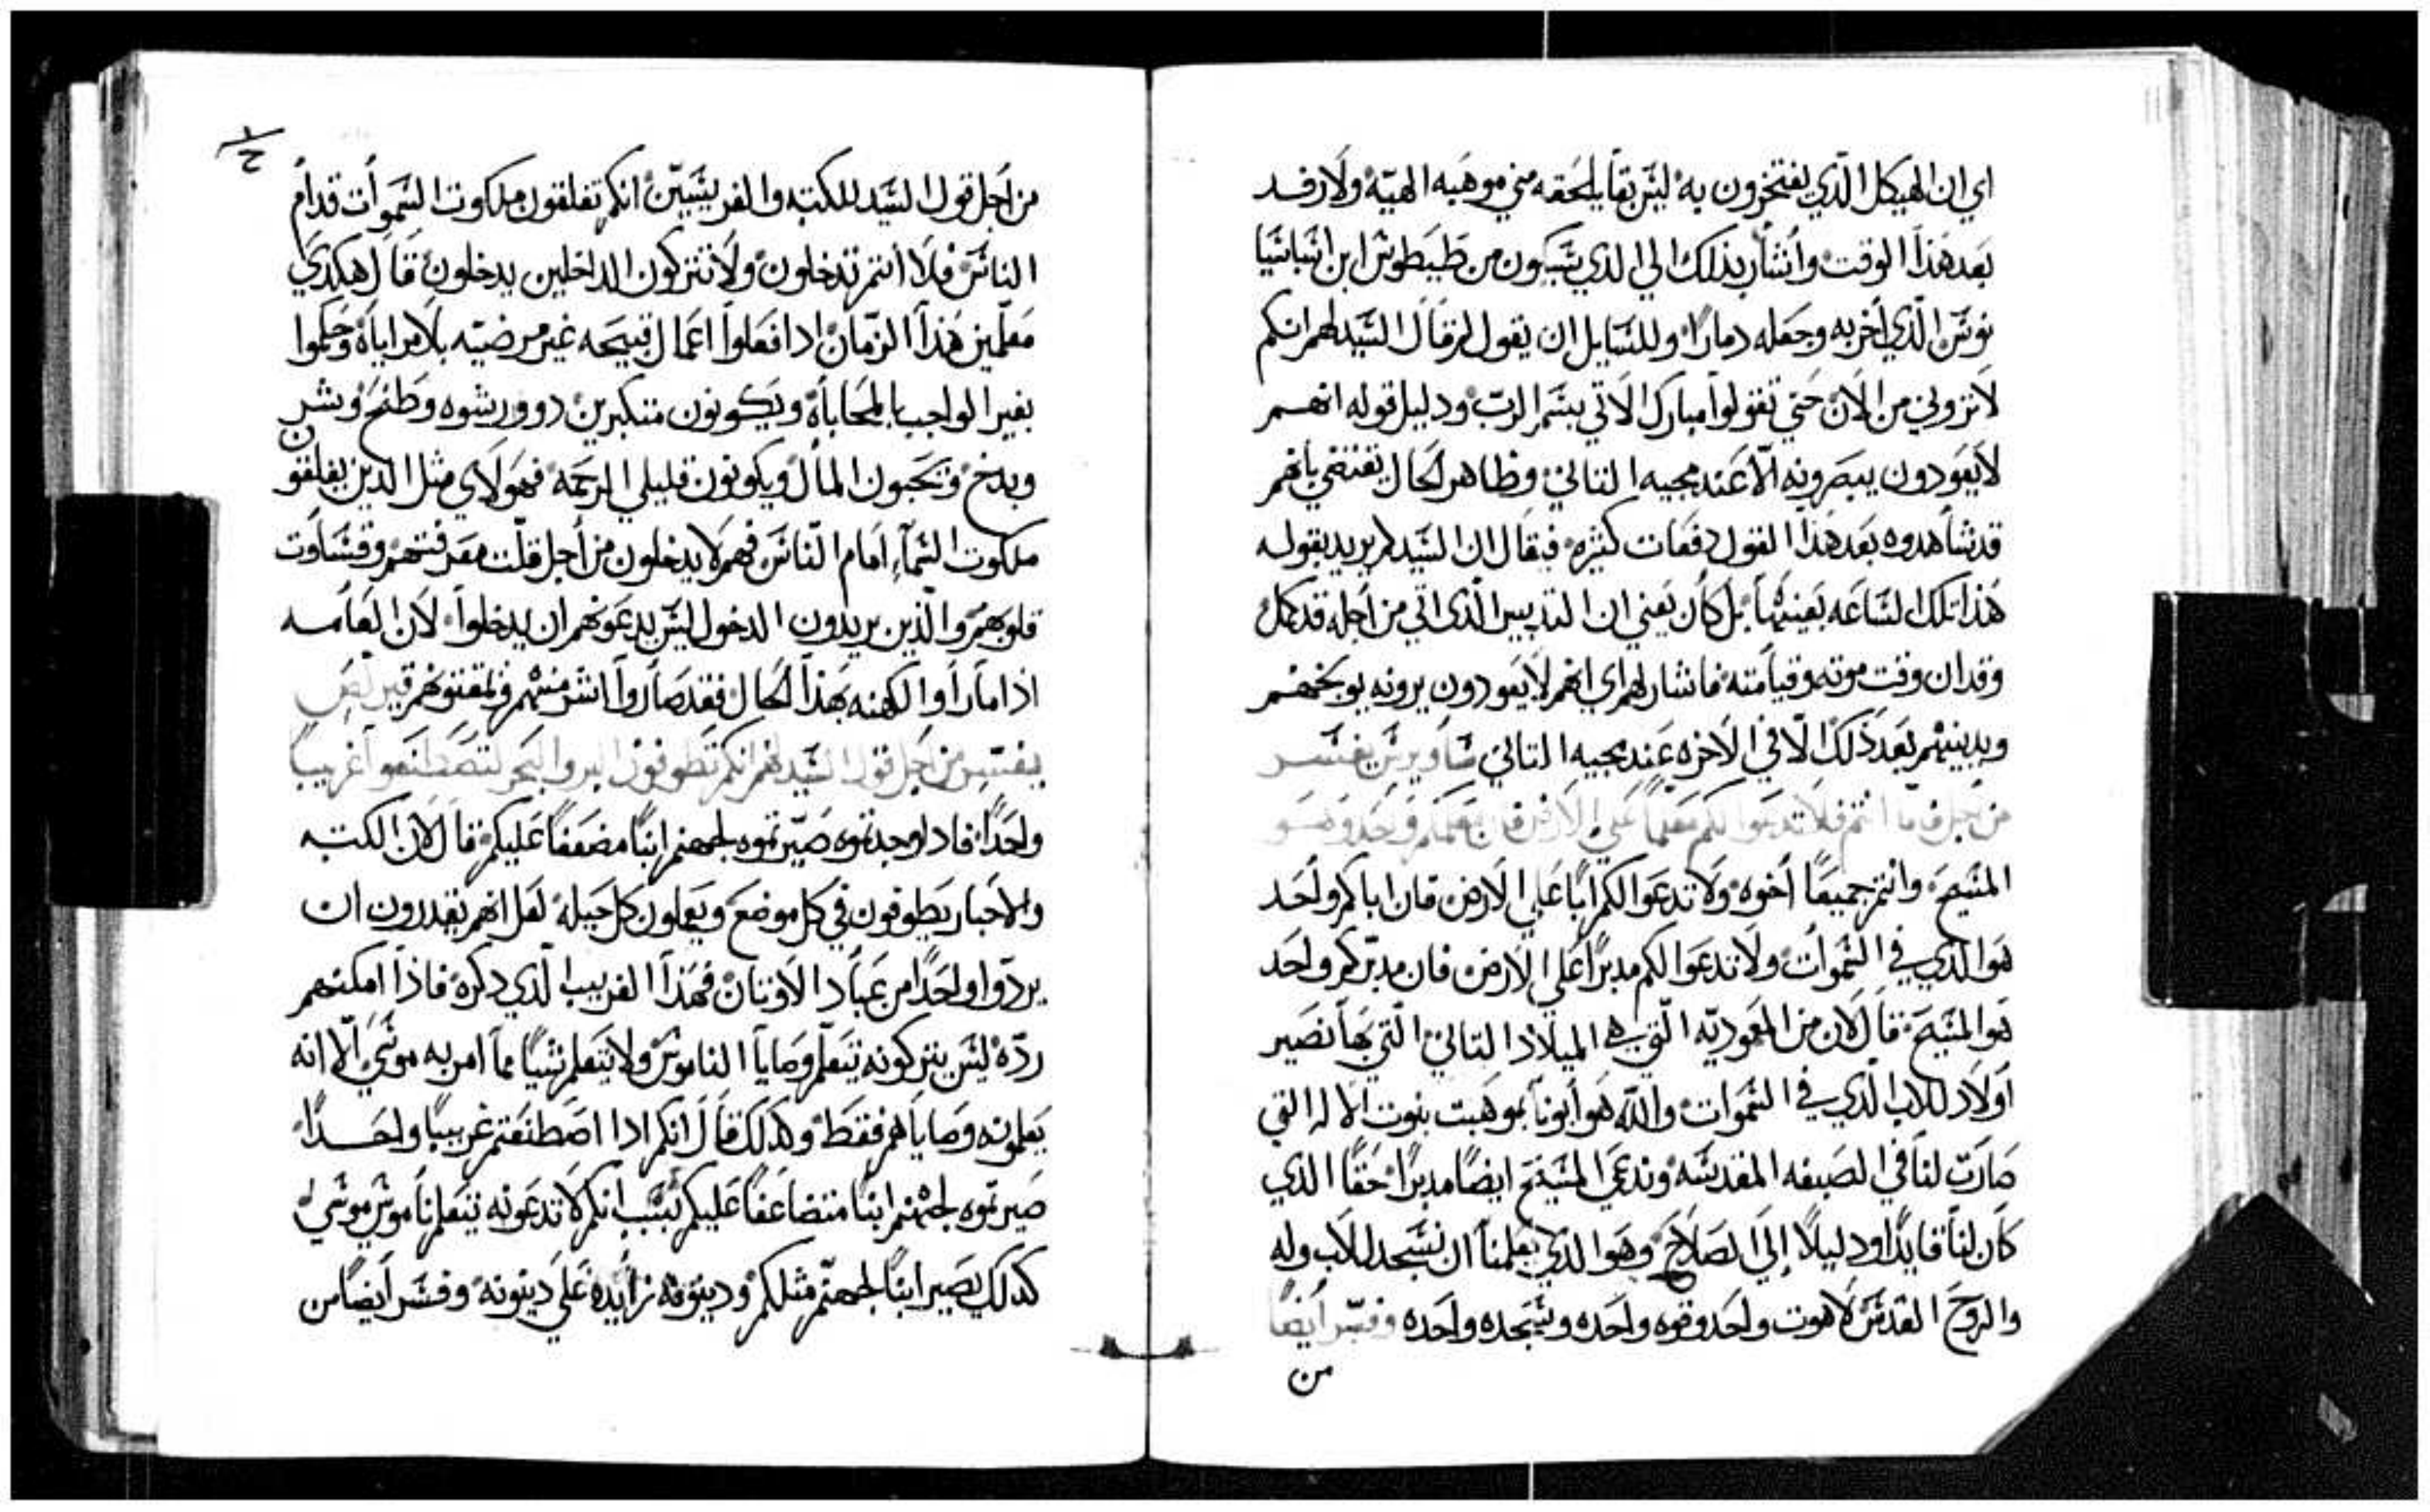 اي ان الهيكل الذي يفتخرون به ليس بقا يلحقه مني موهبه الهيّة ولا رفد
بعد هذا الوقت وأشار بذلك الي الذي يسكون من طيطوش ابن اشباشيا
نوس الذي أخربه وجعله دمارًا وللسايل ان يقول لم قال السيد لهم انكم
لا تروني من الان حتي تقولوا مبارك الاتي بسم الرب ودليل قوله انهم
لا يعودون يبصرونه الّا عند مجيه الثاني وظاهر الحال تقتضي بانهم
قد شاهدوه بعد هذا القول دفعات كثيره فيقال ان السيد لم يريد بقوله
هذا تلك الساعه بعينها بل كان يعني ان التدبير الذي اتي من أجله قد كمل
وقد ان وقت موته وقيامته فاشار لهم اي انهم لا يعودون يرونه يوبخهم
ويدينهم بعد ذلك الّا في الاخره عند مجيه الثاني ساويرس يفسر
من اجل فاما انتم فلا تدعوا لكم معلماً علي الارض فان معلمكم واحد وهو
المسيح وانتم جميعًا أخوه ولا تدعوا لكم ابًا علي الارض فان اباكم واحد
هو الذي في السموات ولا تدعوا لكم مدبرًا علي الارض فان مدبركم واحد
هو المسيح قال لان من المعموديّه الّتي هي الميلاد الثاني التي بها نصير
أولاد للاب الذي في السموات والله هو أبونا بموهبت بنوت الاله التي
صارت لنا في الصبغه المقدسه وندعي المسيح ايضًا مدبرًا حقًا الذي
كان لنا قايدًا ودليلًا إلي الصلاح وهو الذي يعلمنا ان نسجد للاب وله
والروح القدس لاهوت واحد وقوه واحده وسجده واحده وفسّر أيضًا
من
من أجل قول السيد للكتبه والفريسيين انكم تغلقون ملكوت السموات قدام
الناس فلا انتم تدخلون ولا تتركون الداخلين يدخلون قال هكدي
معلّمين هذا الزمان ادا فعلوا اعمال قبيحه غير مرضيّه بلا مراياة وحكموا
بغير الواجب بالمحاباة ويكونون متكبرين دوو رشوه وطمع وبشر
وبدخ وتحبون المال ويكونون قليلي الرحمه فهولاي مثل الدين يغلقون
ملكوت السماء امام النّاس فهم لا يدخلون من أجل قلّت معرفتهم وقساوت
قلوبهم والّذين يريدون الدخول ليس يدعونهم ان يدخلوا لان العامه
اذا ما راوا الكهنه بهذا الحال فقد صاروا اشر منهم
يفسر من اجل قول السيد لهم انكم تطوفون البر والبحر لتصطنعوا غريبًا
واحدًا فاد اوجدتموه صيّرتموه لجهنم ابنًا مضعفًا عليكم قال لان الكتبه
والاحبار يطوفون في كل موضع ويعملون كل حيله لعل انهم يقدرون ان
يردّوا واحدًا من عباد الاوتان فهذا الغريب الّذي دكره فاذا امكنهم
ردّه ليس يتركونه يتعلّم وصايا الناموس ولا يتعلم شيًا مما امر به موسي الّا انه
يعلمونه وصاياهم فقط وكدلك قال انكم ادا اصطنعتم غريبًا واحدًا
صيرتموه لجهنم ابنًا متضاعفًا عليكم بسبب انكم لا تدعونه يتعلم ناموس موسي
كدلك يصير ابنًا لجهنّم مثلكم ودينونه زايده علي دينونه وفسر أيضًا من